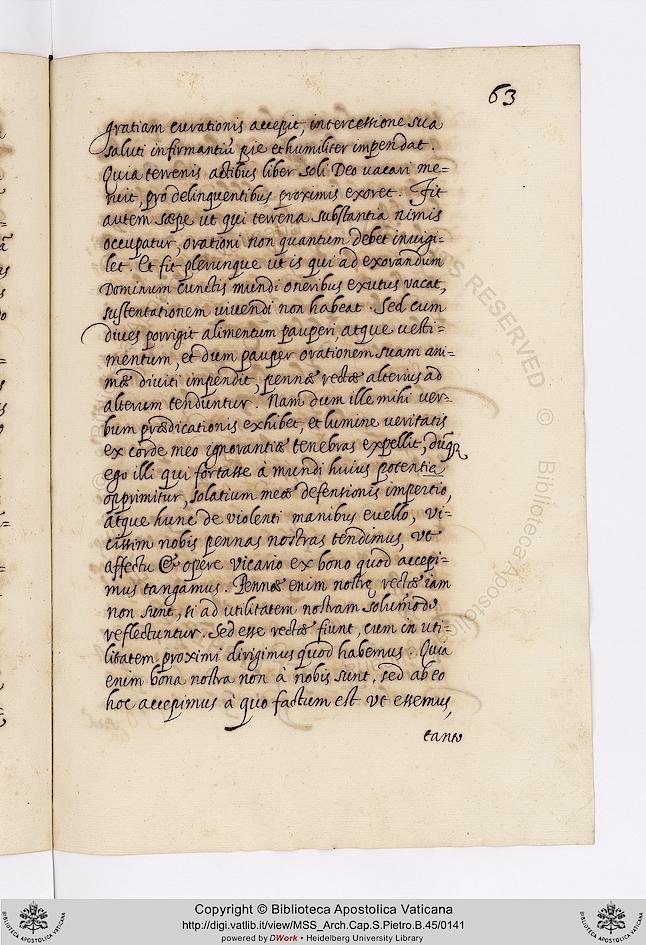 63
gratiam curationis accepit, intercessione sua
saluti infirmantiũ pie et humiliter impendat.
Quia terrenis actibus liber soli Deo vacari me=
ruit, pro delinquentibus proximis exoret. Fit
autem sæpe ut qui terrena substantia nimis
occupatur, orationi non quantum debet invigi=
let. Et fit plerunque ut is qui ad exorandum
Dominum cunctis mundi oneribus exutus vacat,
sustentationem vivendi non habeat. Sed cum
dives porrigit alimentum pauperi, atque vesti=
mentum, et dum pauper orationem suam ani=
mæ diviti impendit, pennæ rectæ alterius ad
alterum tenduntur. Nam dum ille mihi ver=
bum prædicationis exhibet, et lumine veritatis
ex corde meo ignorantiæ tenebras expellit, dũq;
ego illi qui fortasse à mundi huius potentia
opprimitur, solatium meæ defensionis impertio,
atque hunc de violenti manibus evello, vi=
cissim nobis pennas nostras tendimus, ut
affectu & opere vicario ex bono quod accepi=
mus tangamus. Pennæ enim nostrę rectæ iam
non sunt, si ad utilitatem nostram solũmodo
reflectuntur. Sed esse rectæ fiunt, cum in uti=
litatem proximi dirigimus quod habemus. Quia
enim bona nostra non à nobis sunt, sed ab eo
hoc accepimus à quo factum est ut essemus,
tanto
Copyright © Biblioteca Apostolica Vaticana
http://digi.vatlib.it/view/MSS_Arch.Cap.S.Pietro.B.45/0141
powered by DWork • Heidelberg University Library